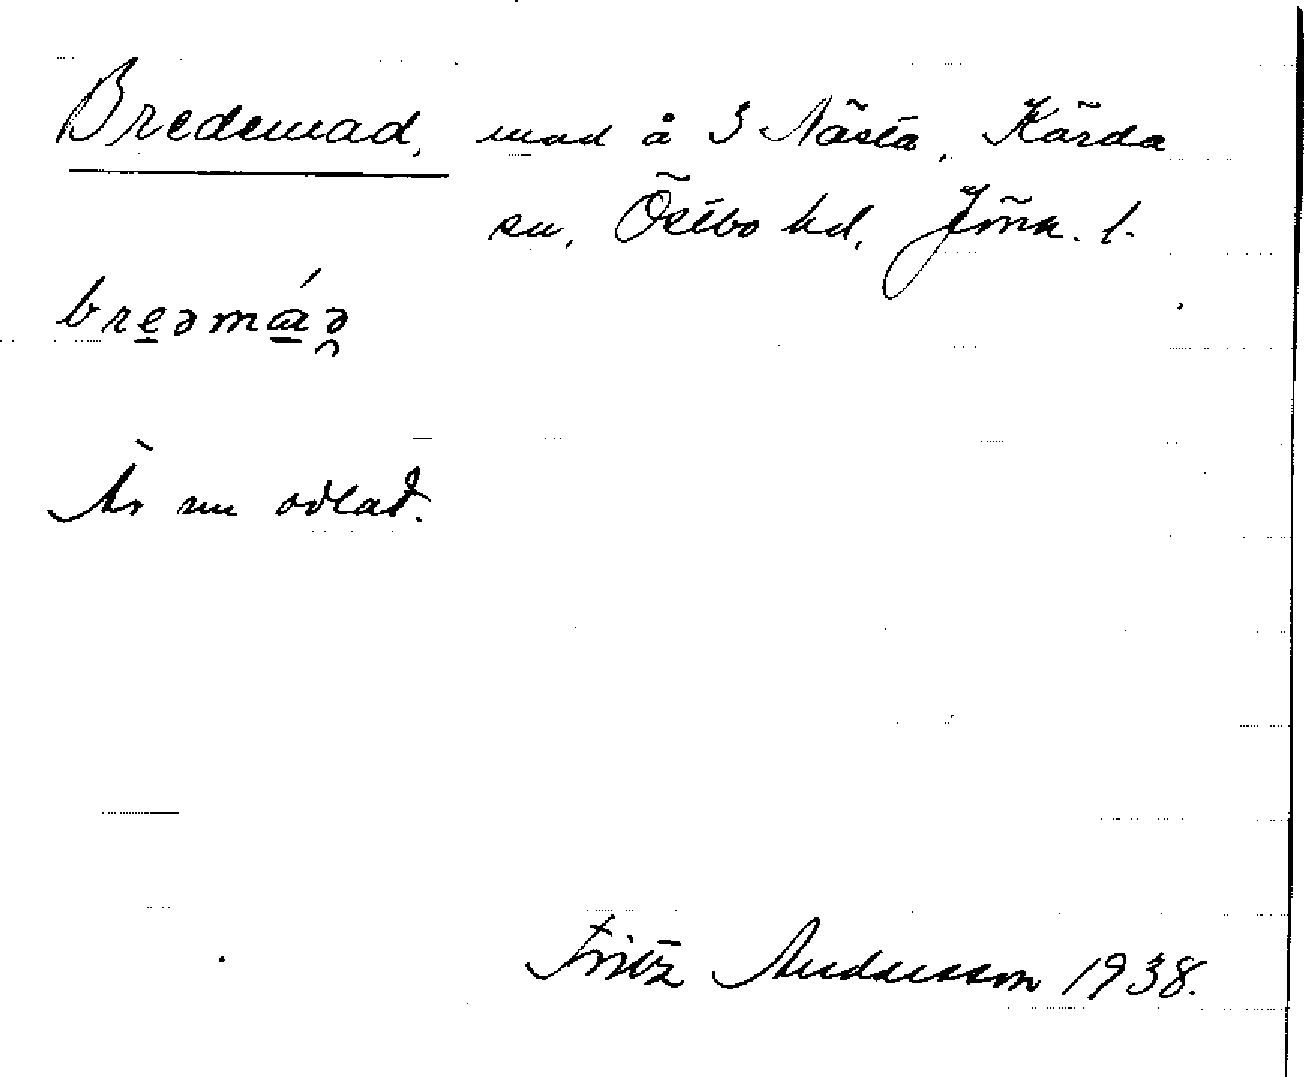 Bredemad, mad å S Nästa, Kärda
sn, Östbo hd, Jönk. l.
bre̲əmá̲ə̯
Är nu odlad.
Fritz Andersson 1938.